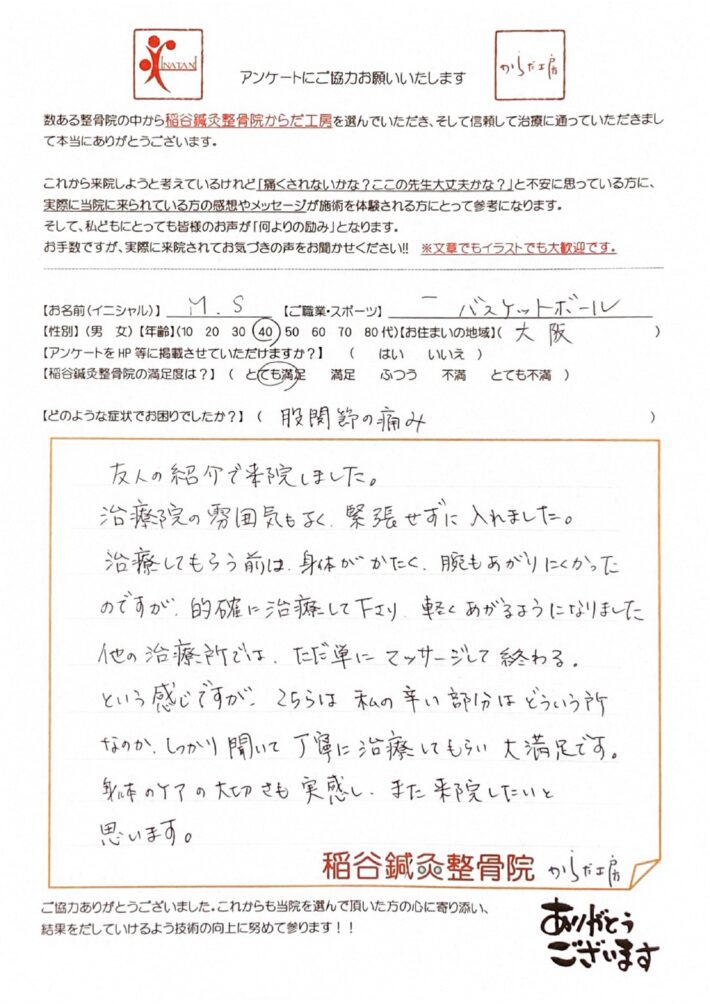 INATANI
アンケートにご協力お願いいたします
からだ工房
数ある整骨院の中から稲谷鍼灸整骨院からだ工房を選んでいただき、そして信頼して治療に通っていただきまし
て本当にありがとうございます。
これから来院しようと考えているけれど「痛くされないかな？ここの先生大丈夫かな？」と不安に思っている方に、
実際に当院に来られている方の感想やメッセージが施術を体験される方にとって参考になります。
そして、私どもにとっても皆様のお声が「何よりの励み」となります。
お手数ですが、実際に来院されてお気づきの声をお聞かせください!! ※文章でもイラストでも大歓迎です。
【お名前(イニシャル)】 M.S 【ご職業・スポーツ】 ー バスケットボール
【性別】(男 女)【年齢】(10 20 30 40 50 60 70 80代)【お住まいの地域】( 大阪 )
【アンケートをHP等に掲載させていただけますか？】 ( はい いいえ )
【稲谷鍼灸整骨院の満足度は？】 ( とても満足 満足 ふつう 不満 とても不満 )
【どのような症状でお困りでしたか？】 ( 股関節の痛み )
友人の紹介で来院しました。
治療院の雰囲気もよく、緊張せずに入れました。
治療してもらう前は、身体がかたく、腕もあがりにくかった
のですが、的確に治療して下さり、軽くあがるようになりました
他の治療所では、ただ単にマッサージして終わる。
という感じですが、こちらは私の辛い部分はどういう所
なのか、しっかり聞いて丁寧に治療してもらい大満足です。
身体のケアの大切さも実感し、また来院したいと
思います。
稲谷鍼灸整骨院 からだ工房
ご協力ありがとうございました。これからも当院を選んで頂いた方の心に寄り添い、
結果をだしていけるよう技術の向上に努めて参ります！！
ありがとう
ございます